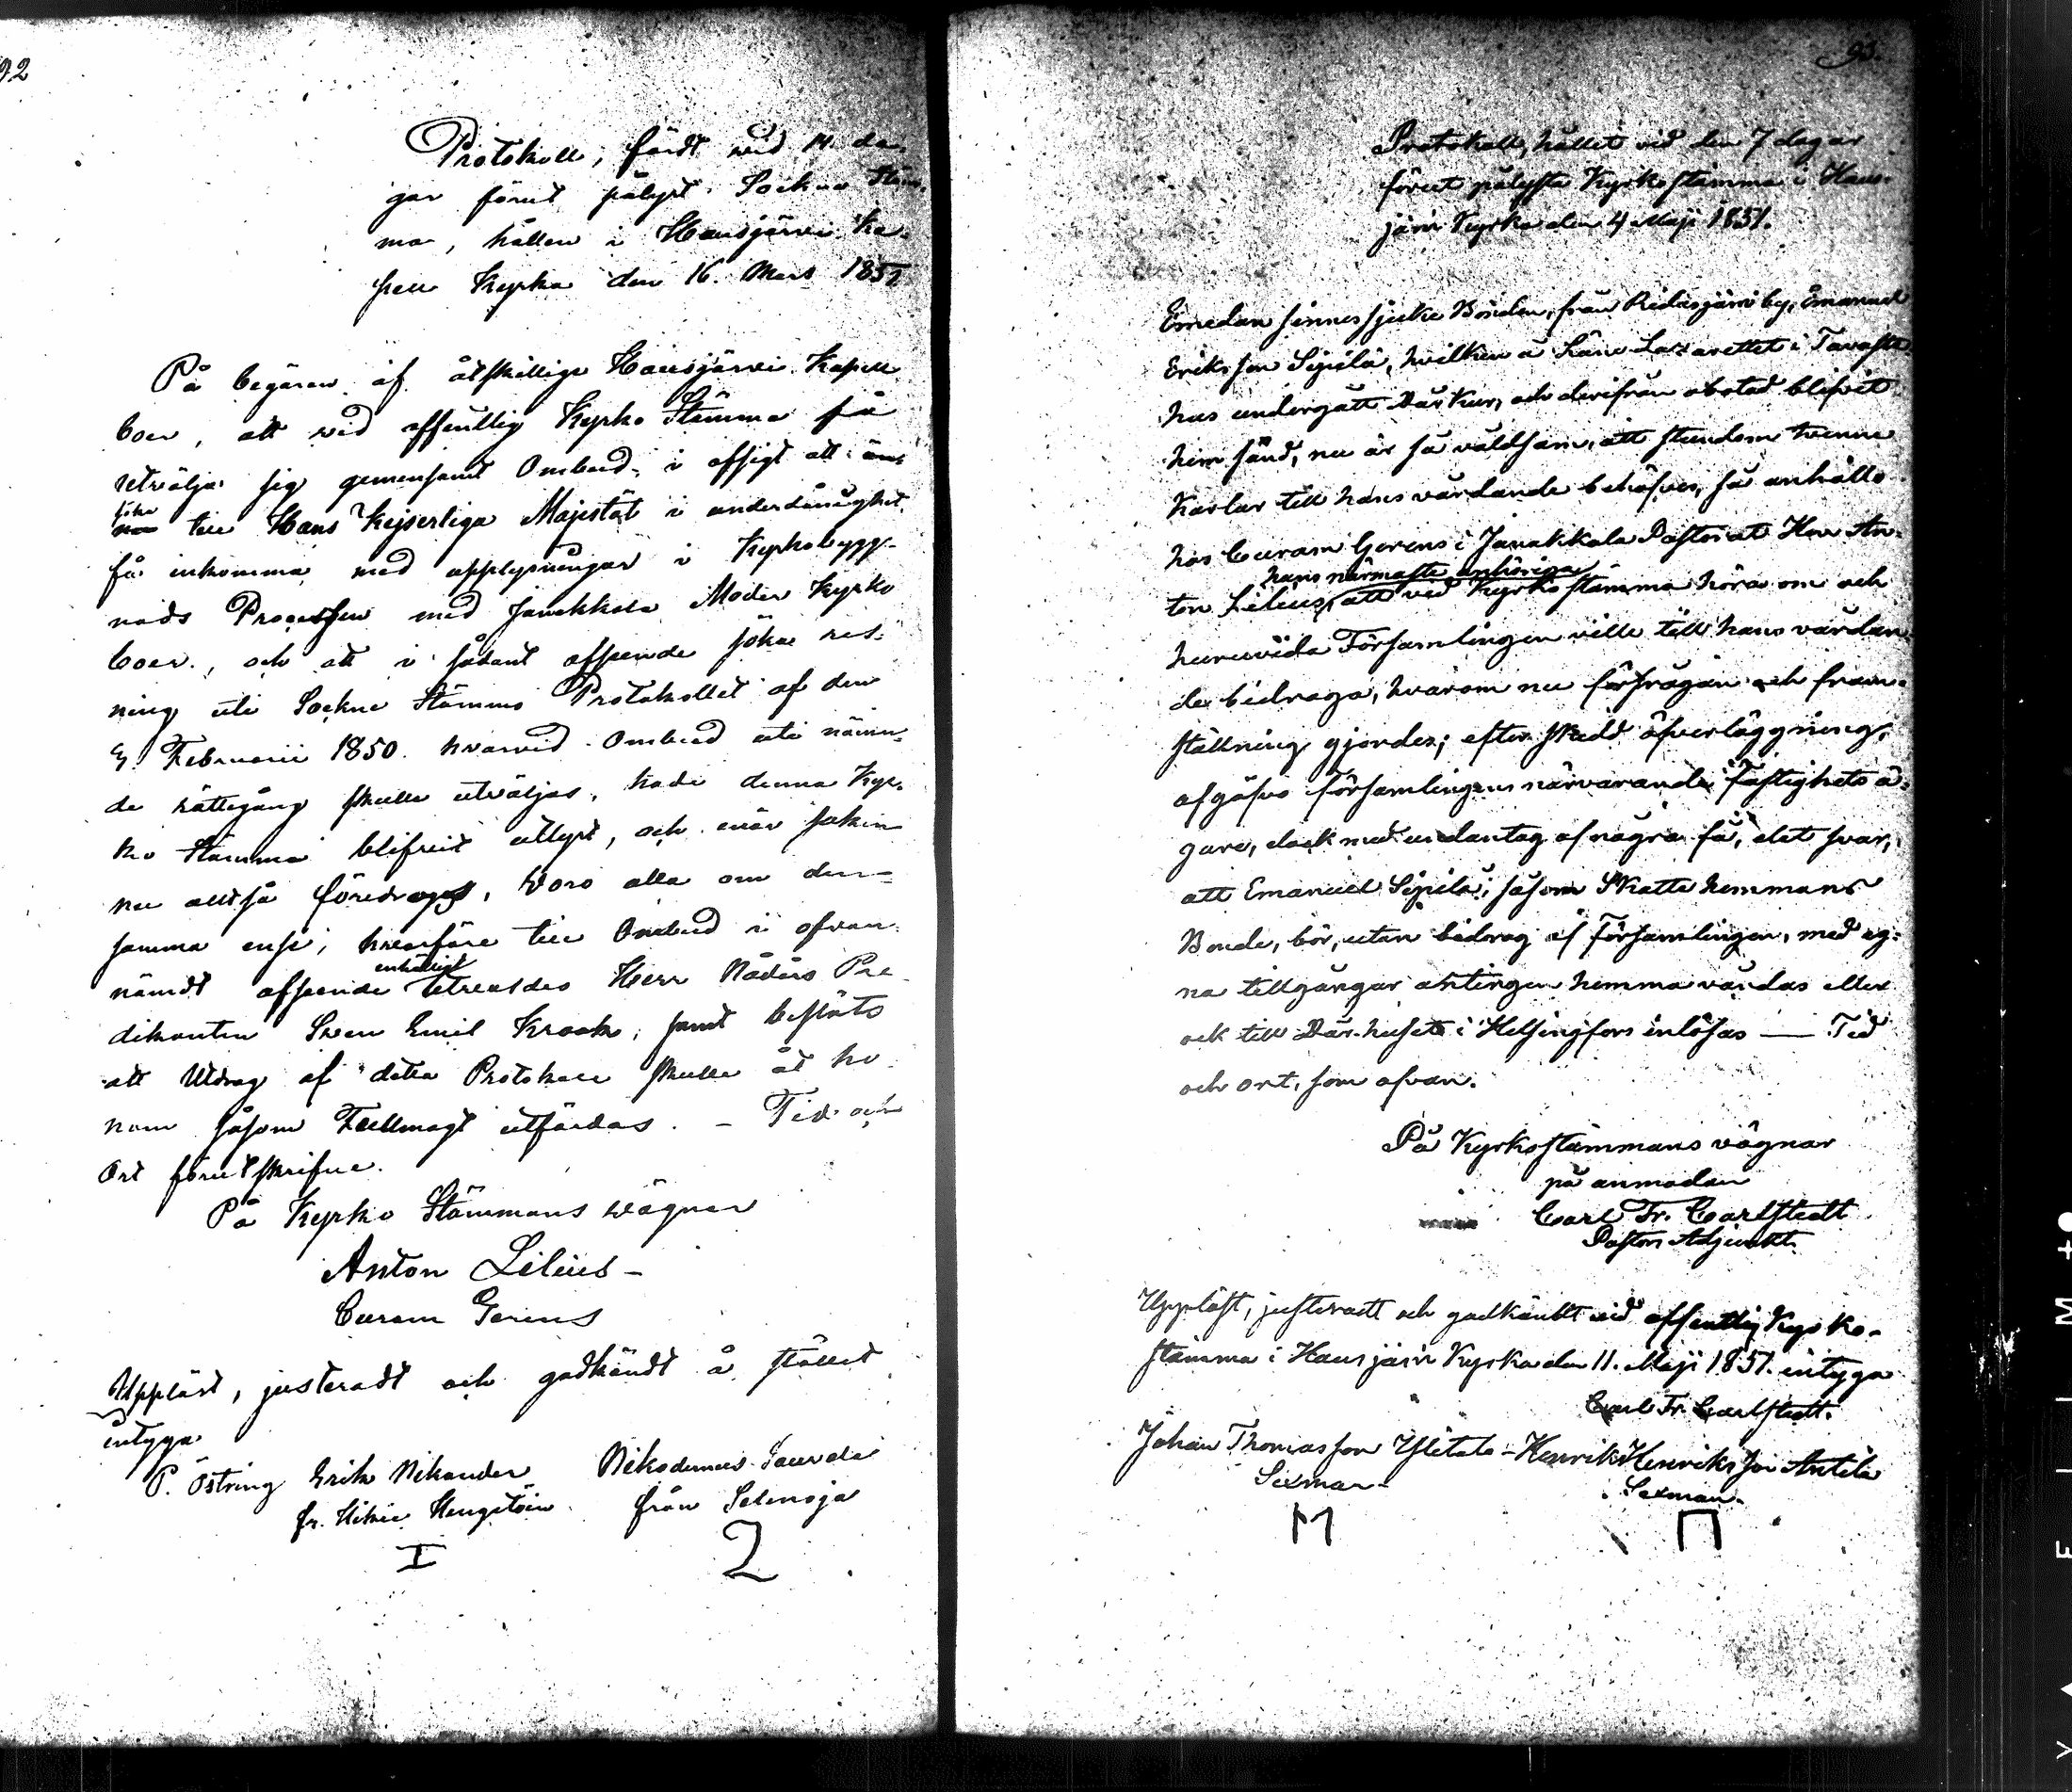 92
Protokoll, fördt wid 14 da-
gar förut pålyst Sockne Stäm-
ma, hållen i Hausjärwi Ka-
pell Kyrka den 16. Mars 1851
På begäran af åtskillige Hausjärwi Kapell
boer, att wid offentlig Kyrko Stämma få
utwälja sig gemensamt Ombud, i afsigt att an-
söka
till Hans Kejserliga Majestät i underdånighet
få inkomma med upplysningar i Kyrkobygg-
nads Processen med Janakkala Moder Kyrko
boer, och att i sådant afseende söka res-
ning uti Sockne Stämmo Protokollet af den
Februarii 1850. hwarwid Ombud uti nämn-
de rättegång skulle utwäljas, hade denna Kyr-
ko Stämma blifwit utlyst, och enär saken
nu alltså föredrogs, woro alla om den-
samma ense, hwarföre till Ombud i ofvan-
enhälligt
nämdt afseende utwaldes Herr Nådårs Pre-
dikanten Sven Emil Kraak, samt beslöts
att Utdrag af detta Protokoll skulle åt ho-
nom såsom Fullmagt utfärdas. – Tid och
Ort förutskrifne.
På Kyrko Stämmans wägnar
Anton Lilius –
Curam Gerens
Uppläst, justeradt och godkändt å stället
intyga
P. Östring Erik Nikander Nikodemus
fr. Hikiä från Selensoja
I 2
93.
Protokoll, hållet vid den 7 dagar
förut pålysta Kyrkostämma i Haus-
järvi Kyrka den 4 Maji 1851.
Emedan sinnessjuke Bonden, från Ridasjärvi by, Emanuel
Eriksson Sipilä, hvilken å Läns Lazarettet i Tavaste-
hus undergått Dårkur, och derifrån obotad blifvit
hemsänd, nu är så våldsam, att stundom tvenne
Karlar till hans vårdande behöfves, så anhöllo
hos Curam Gerens i Janakkala Pastorat Herr An-
hans närmaste anhöriga
ton Lilius, att vid Kyrkostämma höra om och
huruvida Församlingen ville till hans vårdan-
de bidraga, hvarom nu förfrågan och fram-
ställning gjordes; efter skedd öfverläggning,
afgåfvo församlingens närvarande Fastighets ä-
gare, dock med undantag af några få, det svar,
att Emanuel Sipilä, såsom Skatte hemmans
Bonde, bör, utan bidrag af Församlingen, med eg-
na tillgångar antingen hemma vårdas eller
ock till Dårhuset i Helsingfors inlösas — Tid
och ort, som ofvan.
På Kyrkostämmans vägnar
på anmodan
Carl Fr. Carlstedt
Pastors Adjunkt.
Uppläst, justeradt och godkändt vid offentlig Kyrko-
stämma i Hausjärvi Kyrka den 11. Maji 1851. intyga
Carl Fr. Carlstedt.
Johan Thomasson Ylitalo – Henrik Henriksson Antila
Sexman – Sexman –